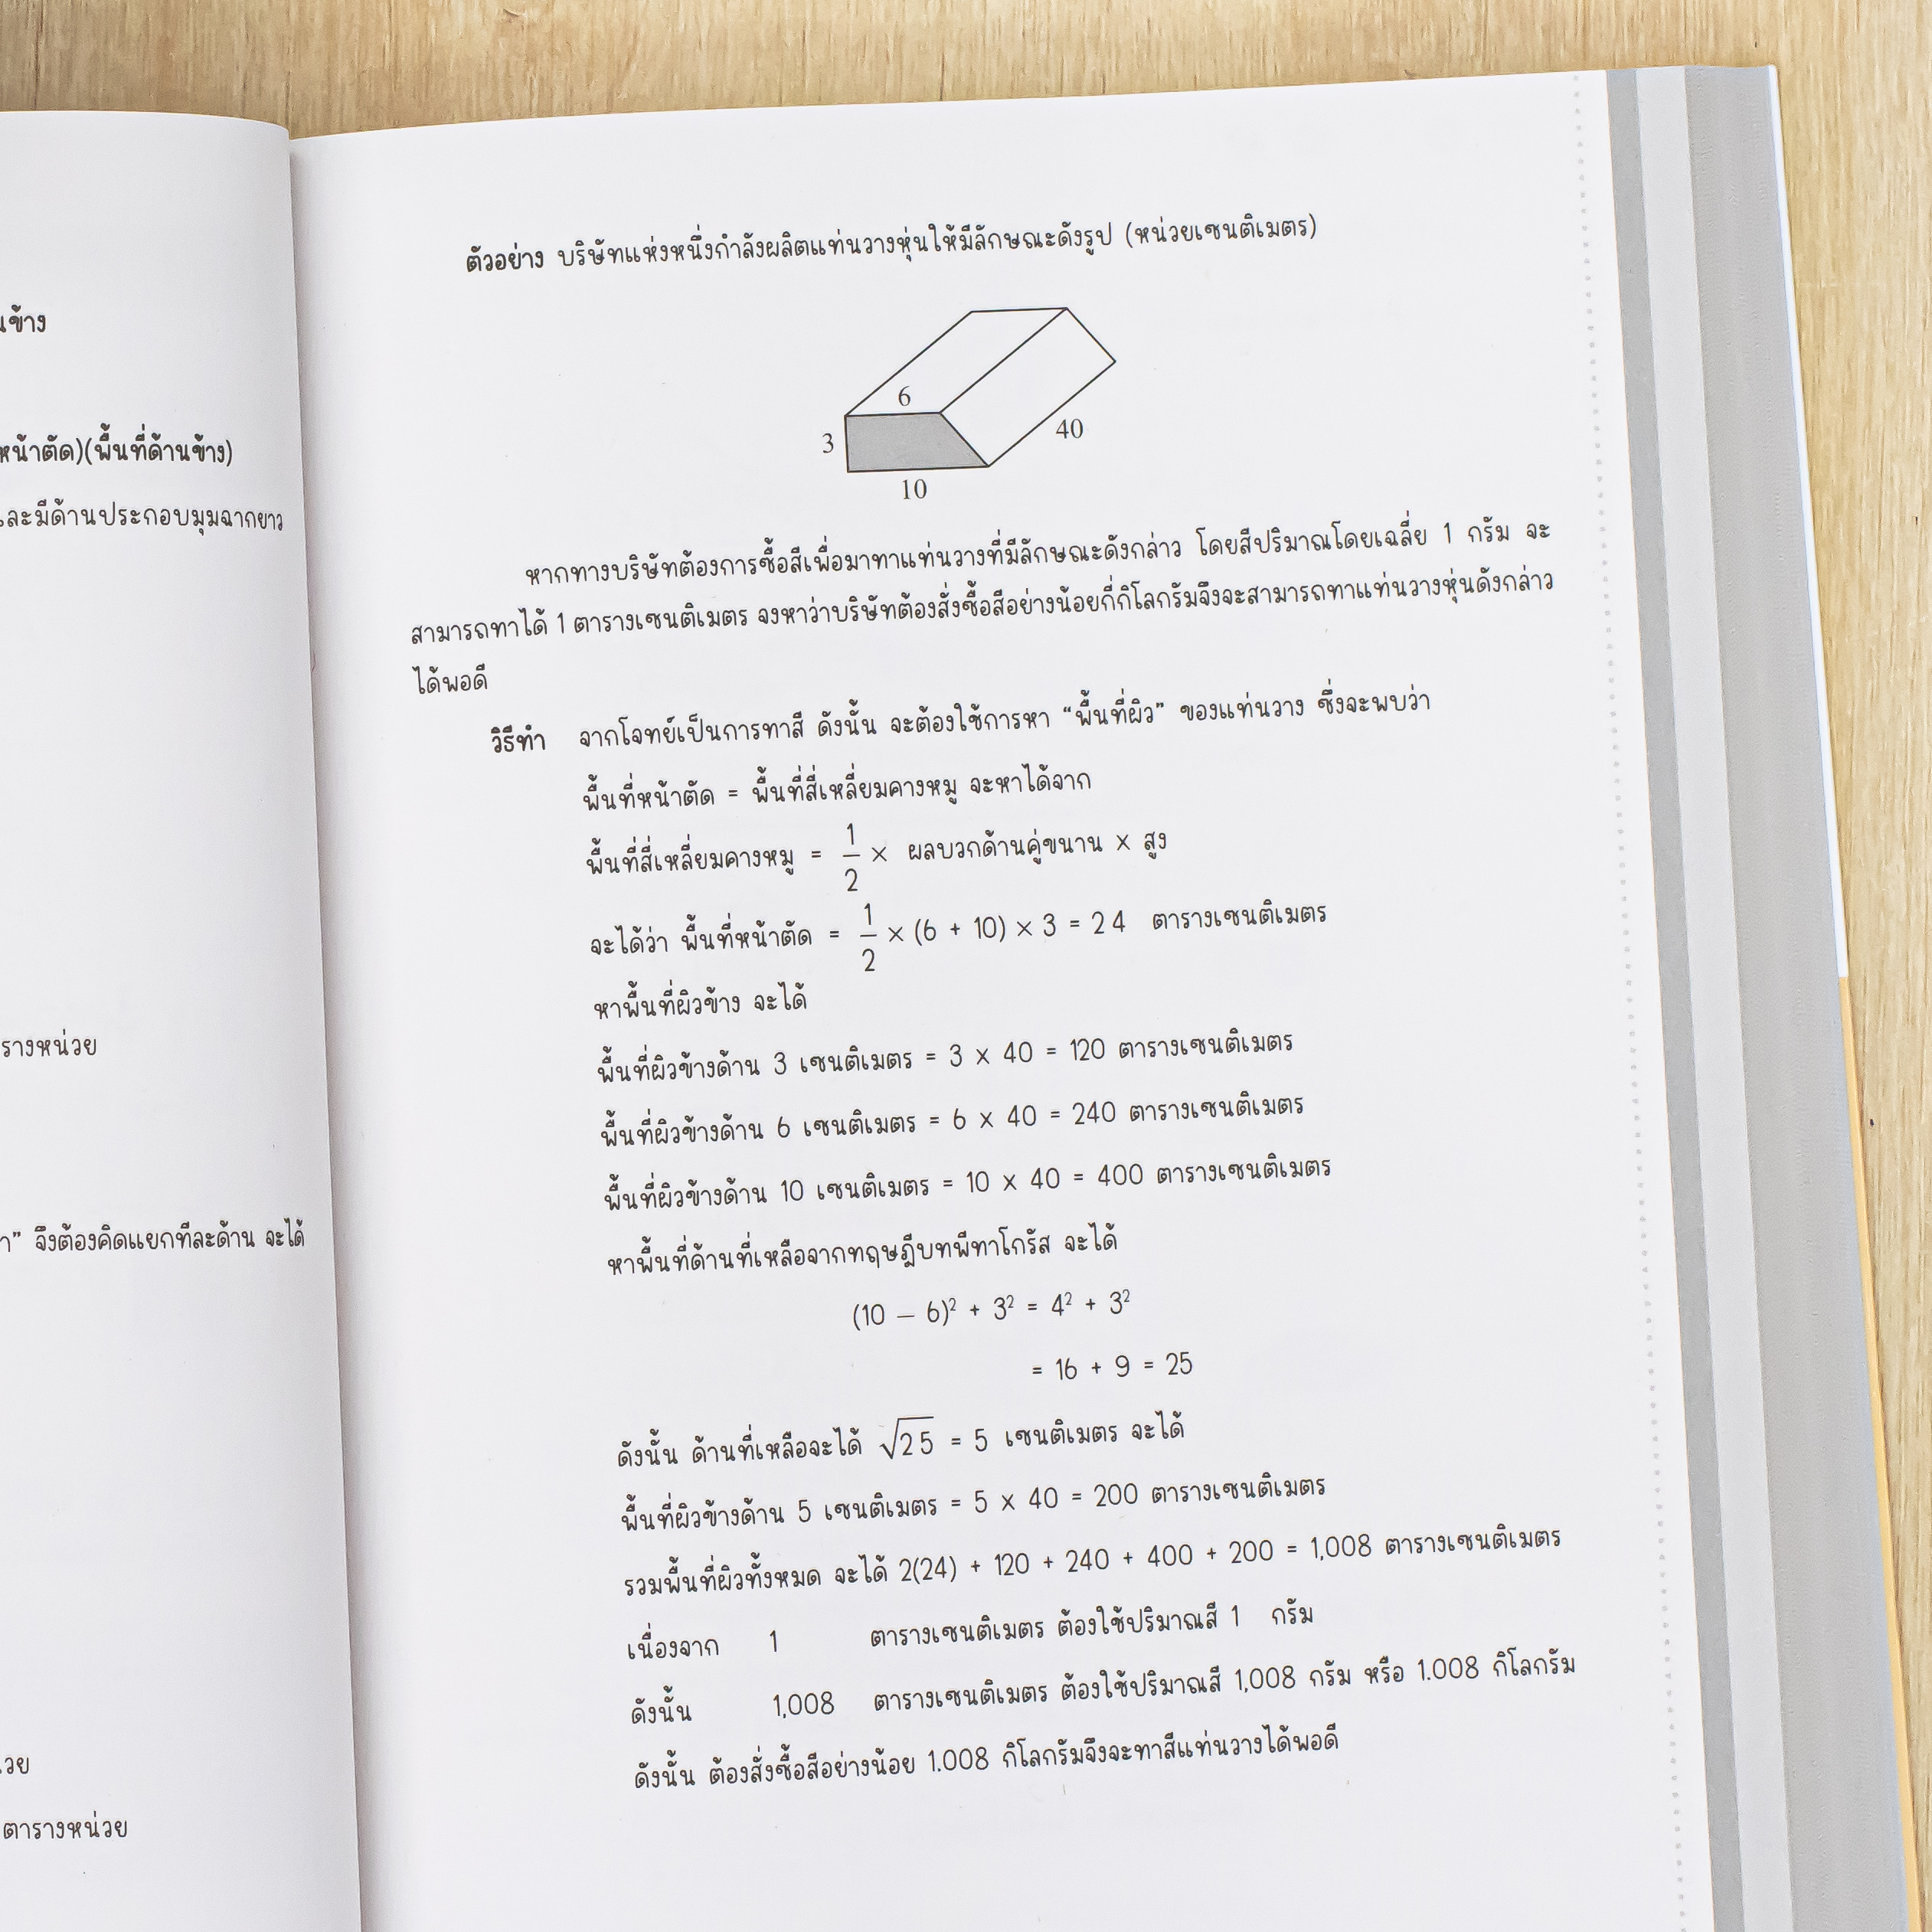 นข้าง
หน้าตัด)(พื้นที่ด้านข้าง)
และมีด้านประกอบมุมฉากยาว
รางหน่วย
จึงต้องคิดแยกทีละด้าน จะได้
วย
ตารางหน่วย
ตัวอย่าง บริษัทแห่งหนึ่งกำลังผลิตแท่นวางหุ่นให้มีลักษณะดังรูป (หน่วยเซนติเมตร)
6
3
40
10
หากทางบริษัทต้องการซื้อสีเพื่อมาทาแท่นวางที่มีลักษณะดังกล่าว โดยสีปริมาณโดยเฉลี่ย 1 กรัม จะ
สามารถทาได้ 1 ตารางเซนติเมตร จงหาว่าบริษัทต้องสั่งซื้อสีอย่างน้อยกี่กิโลกรัมจึงจะสามารถทาแท่นวางหุ่นดังกล่าว
ได้พอดี
วิธีทำ จากโจทย์เป็นการทาสี ดังนั้น จะต้องใช้การหา “พื้นที่ผิว” ของแท่นวาง ซึ่งจะพบว่า
พื้นที่หน้าตัด = พื้นที่สี่เหลี่ยมคางหมู จะหาได้จาก
พื้นที่สี่เหลี่ยมคางหมู = 1/2 × ผลบวกด้านคู่ขนาน × สูง
จะได้ว่า พื้นที่หน้าตัด = 1/2 × (6 + 10) × 3 = 24 ตารางเซนติเมตร
หาพื้นที่ผิวข้าง จะได้
พื้นที่ผิวข้างด้าน 3 เซนติเมตร = 3 × 40 = 120 ตารางเซนติเมตร
พื้นที่ผิวข้างด้าน 6 เซนติเมตร = 6 × 40 = 240 ตารางเซนติเมตร
พื้นที่ผิวข้างด้าน 10 เซนติเมตร = 10 × 40 = 400 ตารางเซนติเมตร
หาพื้นที่ด้านที่เหลือจากทฤษฎีบทพีทาโกรัส จะได้
(10 – 6)² + 3² = 4² + 3²
= 16 + 9 = 25
ดังนั้น ด้านที่เหลือจะได้ √25 = 5 เซนติเมตร จะได้
พื้นที่ผิวข้างด้าน 5 เซนติเมตร = 5 × 40 = 200 ตารางเซนติเมตร
รวมพื้นที่ผิวทั้งหมด จะได้ 2(24) + 120 + 240 + 400 + 200 = 1,008 ตารางเซนติเมตร
เนื่องจาก 1 ตารางเซนติเมตร ต้องใช้ปริมาณสี 1 กรัม
ดังนั้น 1,008 ตารางเซนติเมตร ต้องใช้ปริมาณสี 1,008 กรัม หรือ 1.008 กิโลกรัม
ดังนั้น ต้องสั่งซื้อสีอย่างน้อย 1.008 กิโลกรัมจึงจะทาสีแท่นวางได้พอดี